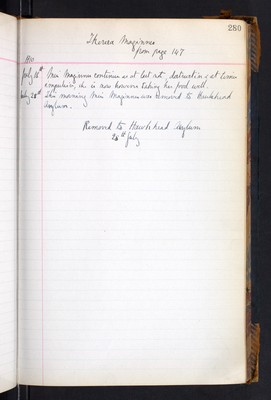 280
Theresa Maginnis
from page 147
1911
July 18th Miss Maginnis continues as at last note, destructive & at times
impulsive, she is now however taking her food well.
July 28th This morning Miss Maginnis was removed to Hawkhead
Asylum.
Removed to Hawkhead Asylum
28th July